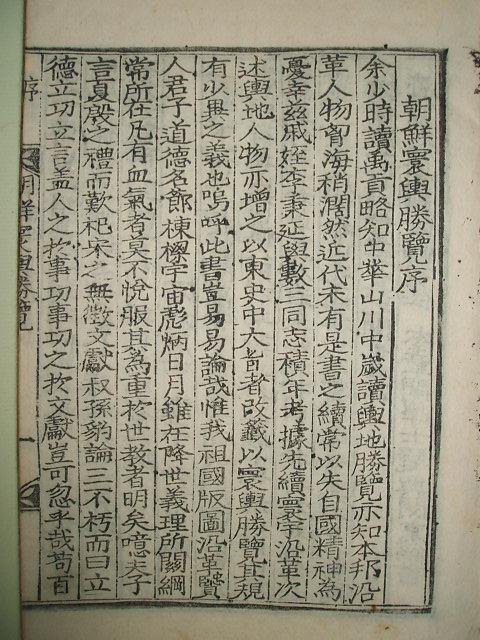 朝鮮寰輿勝覽序
余少時讀禹貢略知中華山川中歲讀輿地勝覽亦知本邦沿
革人物胷海稍濶然近代未有是書之續常以失自國精神爲
憂幸茲戚姪李秉延與數三同志積年考據先續寰宇沿革次
述輿地人物亦增之以東史中大旨者改籤以寰輿勝覽其規
有少異之義也嗚呼此書豈易易論哉惟我祖國版圖沿革賢
人君子道德名節棟樑宇宙彪炳日月雖在降世義理所關綱
常所在凡有血氣者莫不悅服其爲重於世教者明矣噫夫子
言夏殷之禮而歎杞宋之無徵文獻叔孫豹論三不朽而曰立
德立功立言盖人之於事功事功之於文獻豈可忽乎哉苟百
序
朝鮮寰輿勝覽
一